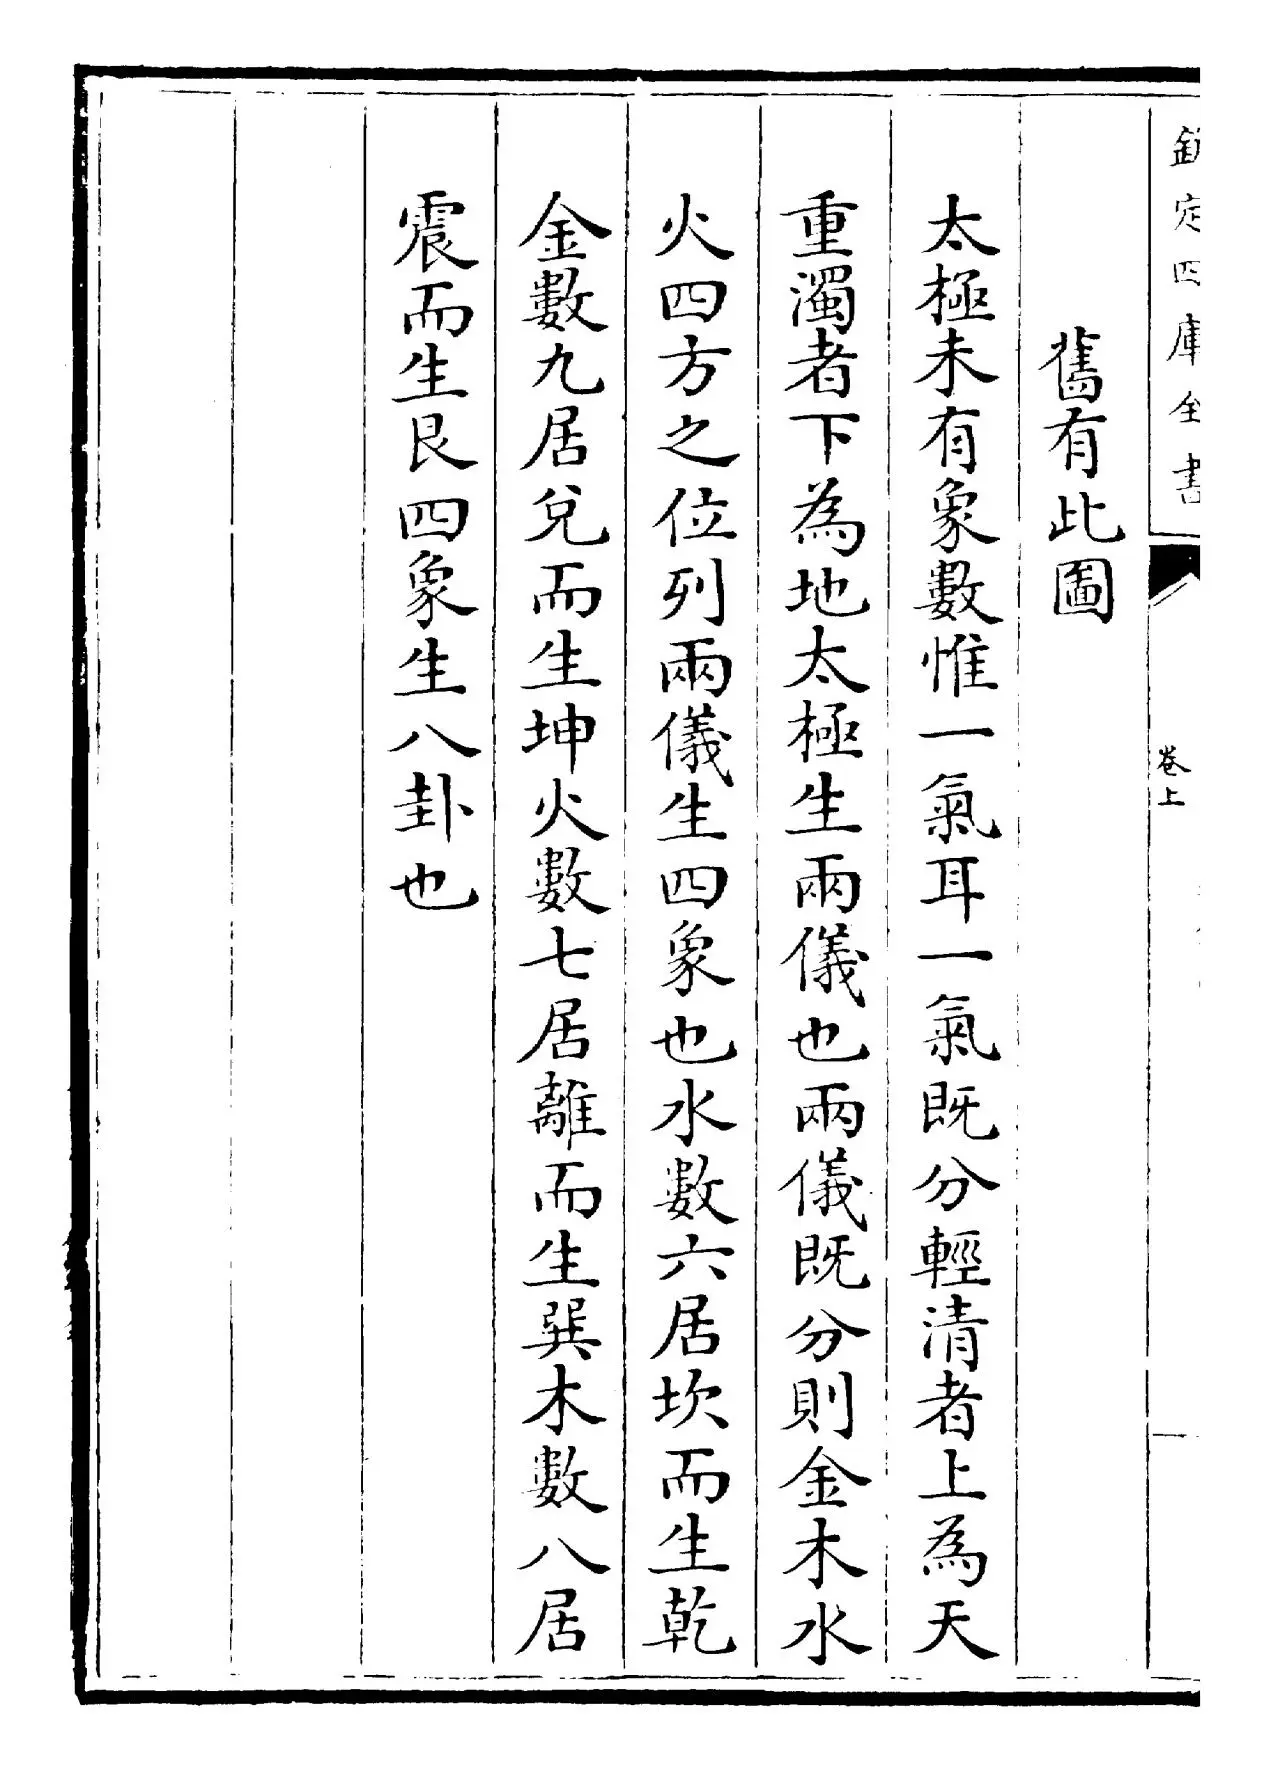 欽定四庫全書
卷上
舊有此圖
太極未有象數惟一氣耳一氣既分輕清者上為天
重濁者下為地太極生兩儀也兩儀既分則金木水
火四方之位列兩儀生四象也水數六居坎而生乾
金數九居兊而生坤火數七居離而生巽木數八居
震而生艮四象生八卦也